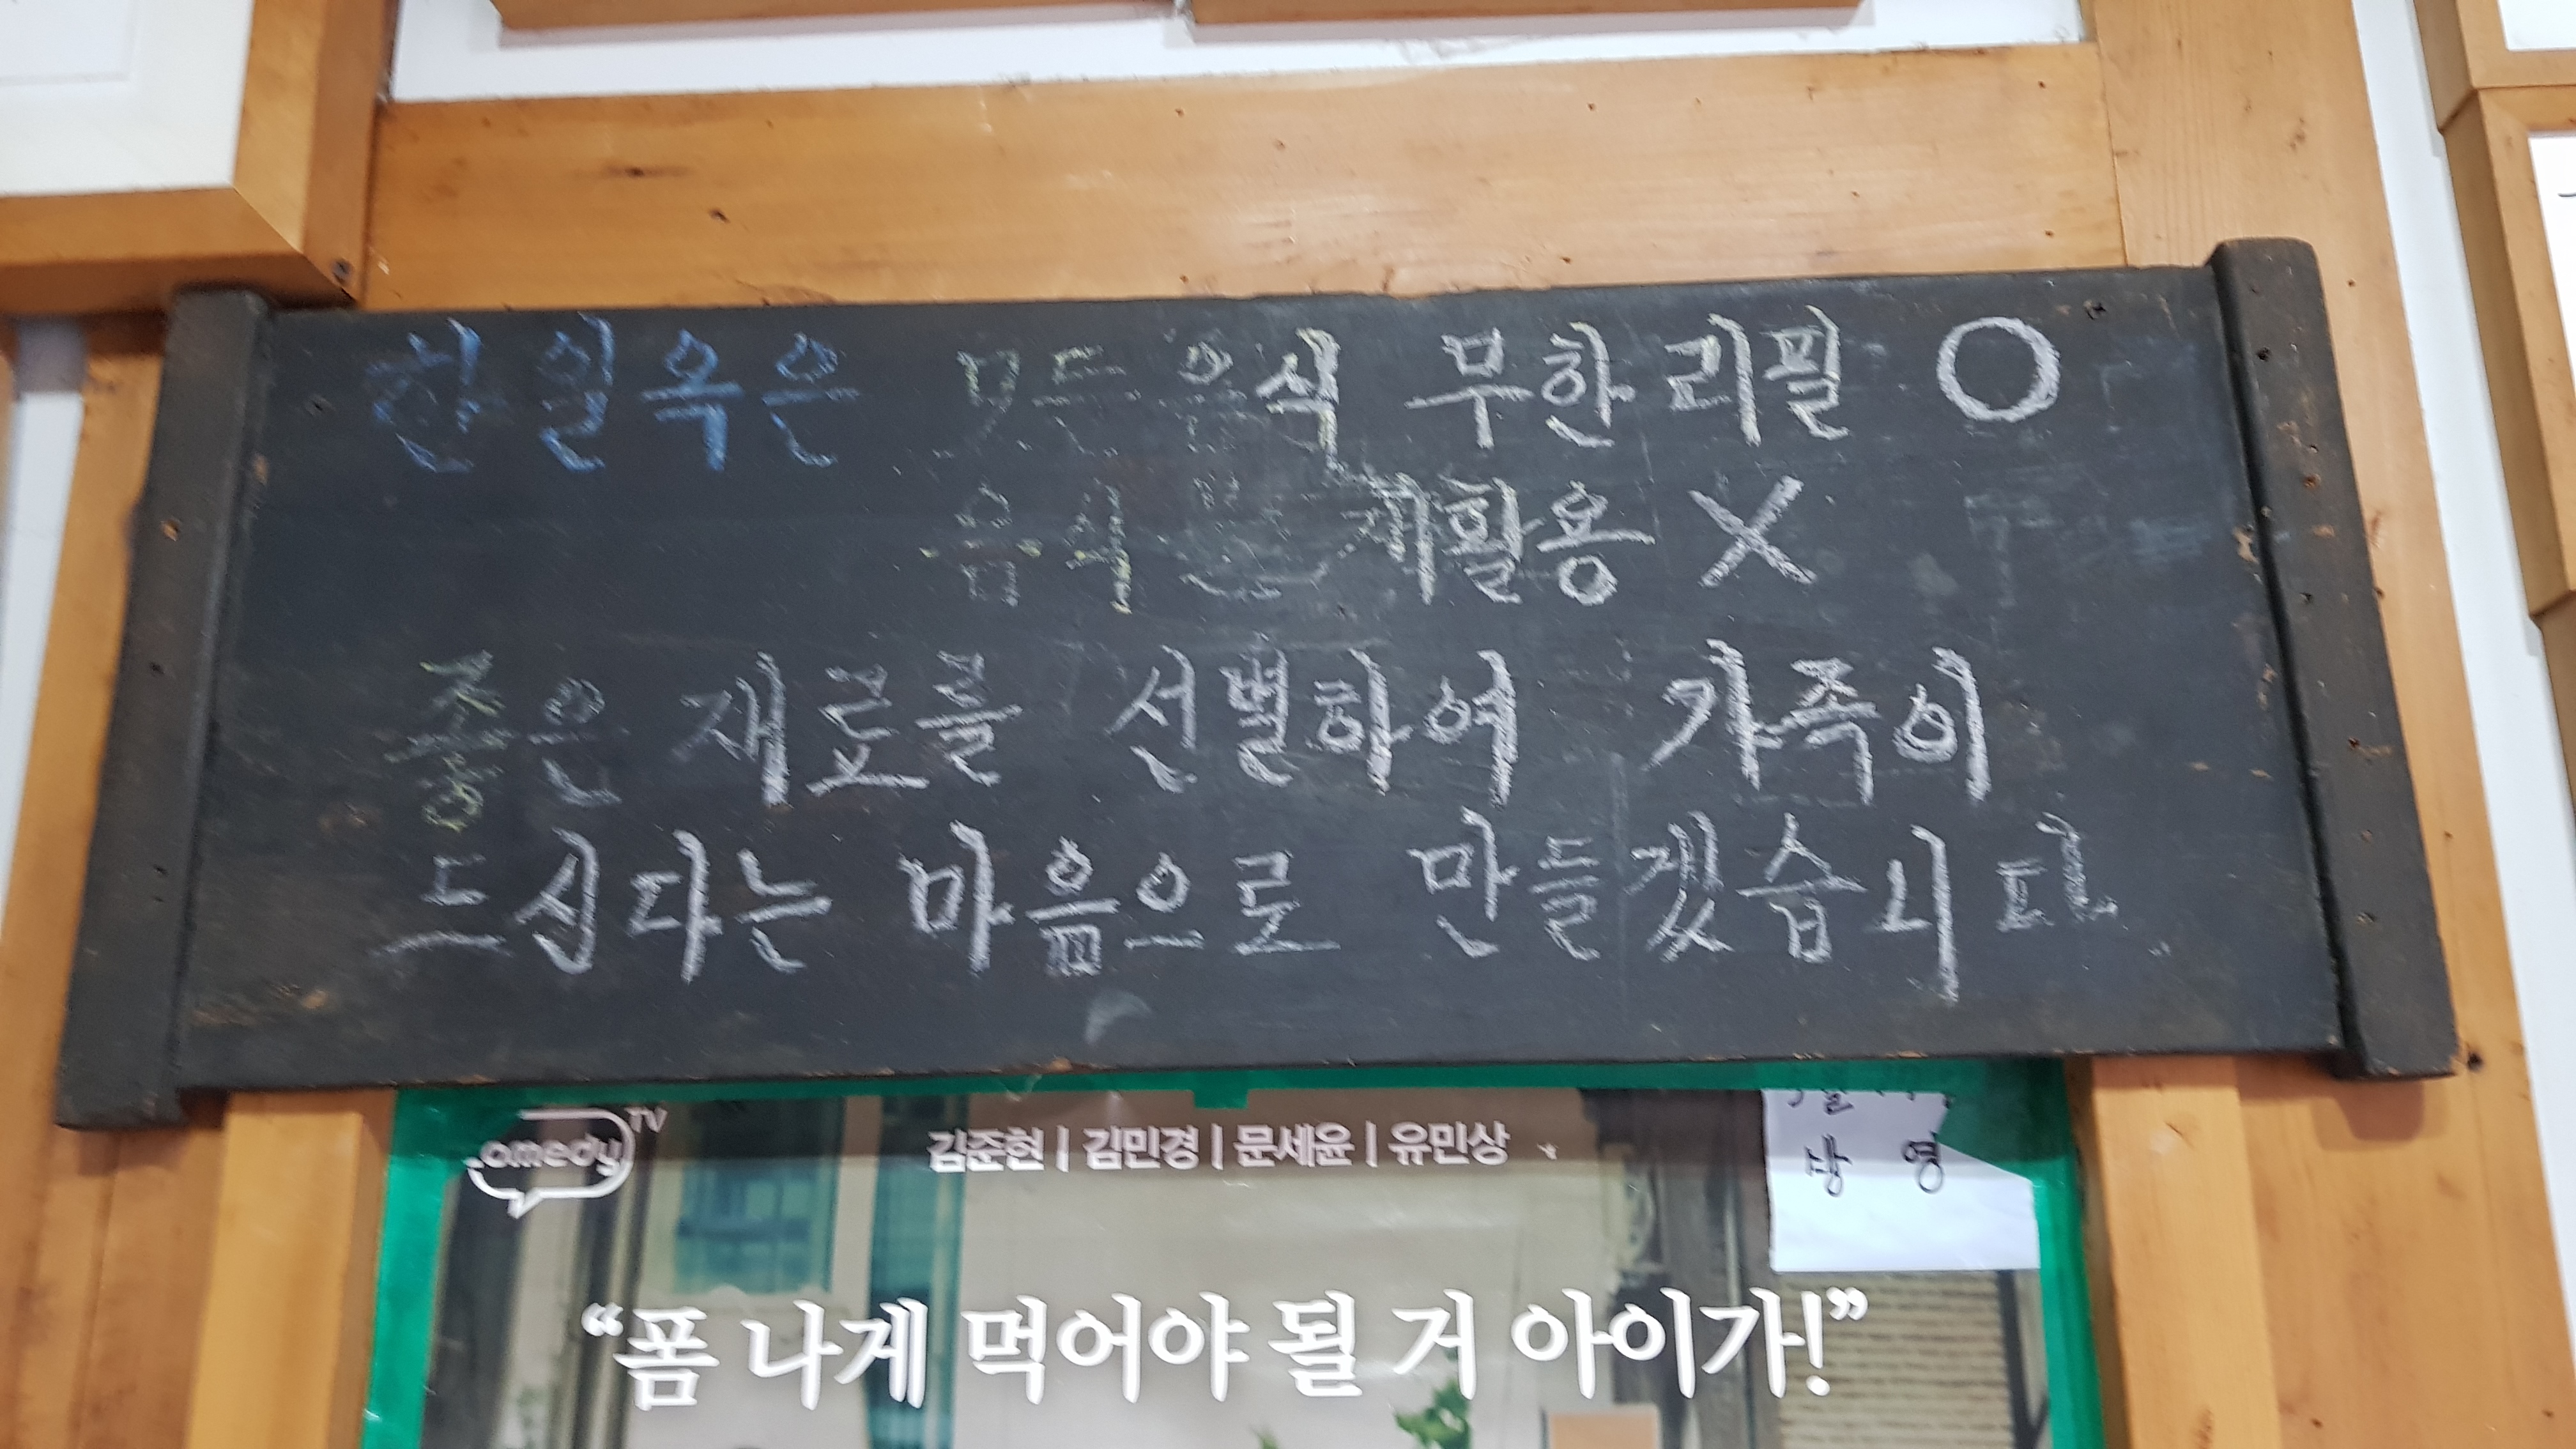 한일옥은 모든 음식 무한리필 O
음식물 재활용 X
좋은 재료를 선별하여 가족이
드신다는 마음으로 만들겠습니다
omedy TV
김준현 | 김민경 | 문세윤 | 유민상
방 영
“폼 나게 먹어야 될 거 아이가!”